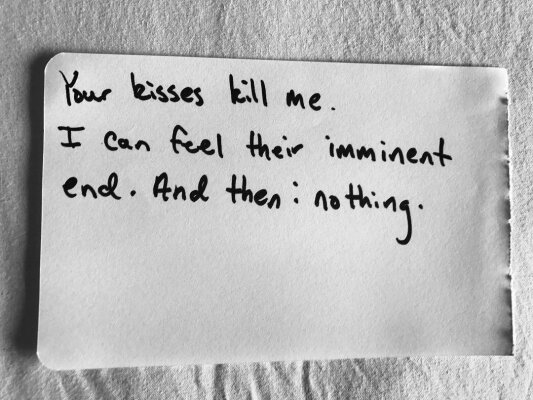 Your kisses kill me.
I can feel their imminent
end. And then: nothing.